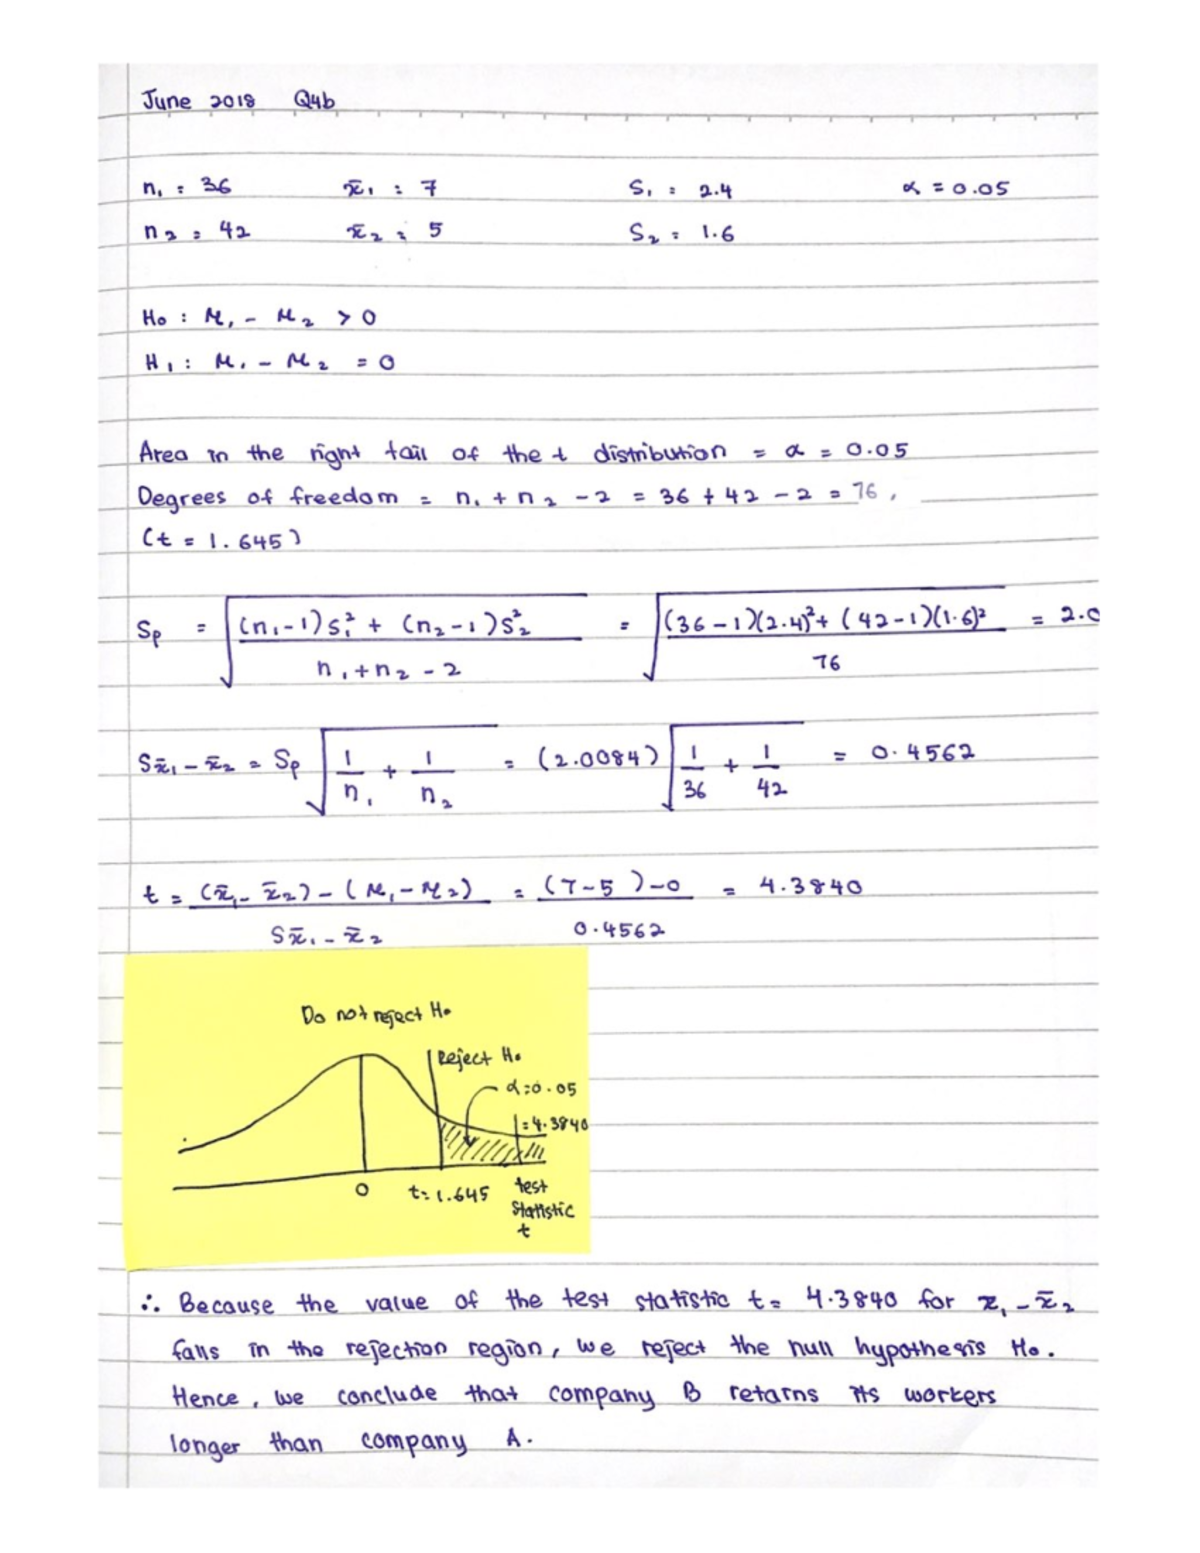 June 2018 Q4b
n₁ = 36 x̄₁ = 7 S₁ = 2.4 α = 0.05
n₂ = 42 x̄₂ = 5 S₂ = 1.6
H₀ : μ₁ - μ₂ > 0
H₁ : μ₁ - μ₂ = 0
Area in the right tail of the t distribution = α = 0.05
Degrees of freedom = n₁ + n₂ - 2 = 36 + 42 - 2 = 76,
(t = 1.645)
Sp = √((n₁-1)S₁² + (n₂-1)S₂² / n₁+n₂-2) = √((36-1)(2.4)² + (42-1)(1.6)² / 76) = 2.0
Sx̄₁-x̄₂ = Sp √(1/n₁ + 1/n₂) = (2.0084) √(1/36 + 1/42) = 0.4562
t = (x̄₁-x̄₂)-(μ₁-μ₂) / Sx̄₁-x̄₂ = (7-5)-0 / 0.4562 = 4.3840
Do not reject H₀
Reject H₀
α=0.05
=4.3840
0 t=1.645 test
statistic
t
∴ Because the value of the test statistic t = 4.3840 for x₁-x̄₂
falls in the rejection region, we reject the null hypothesis H₀.
Hence, we conclude that company B retains its workers
longer than company A.